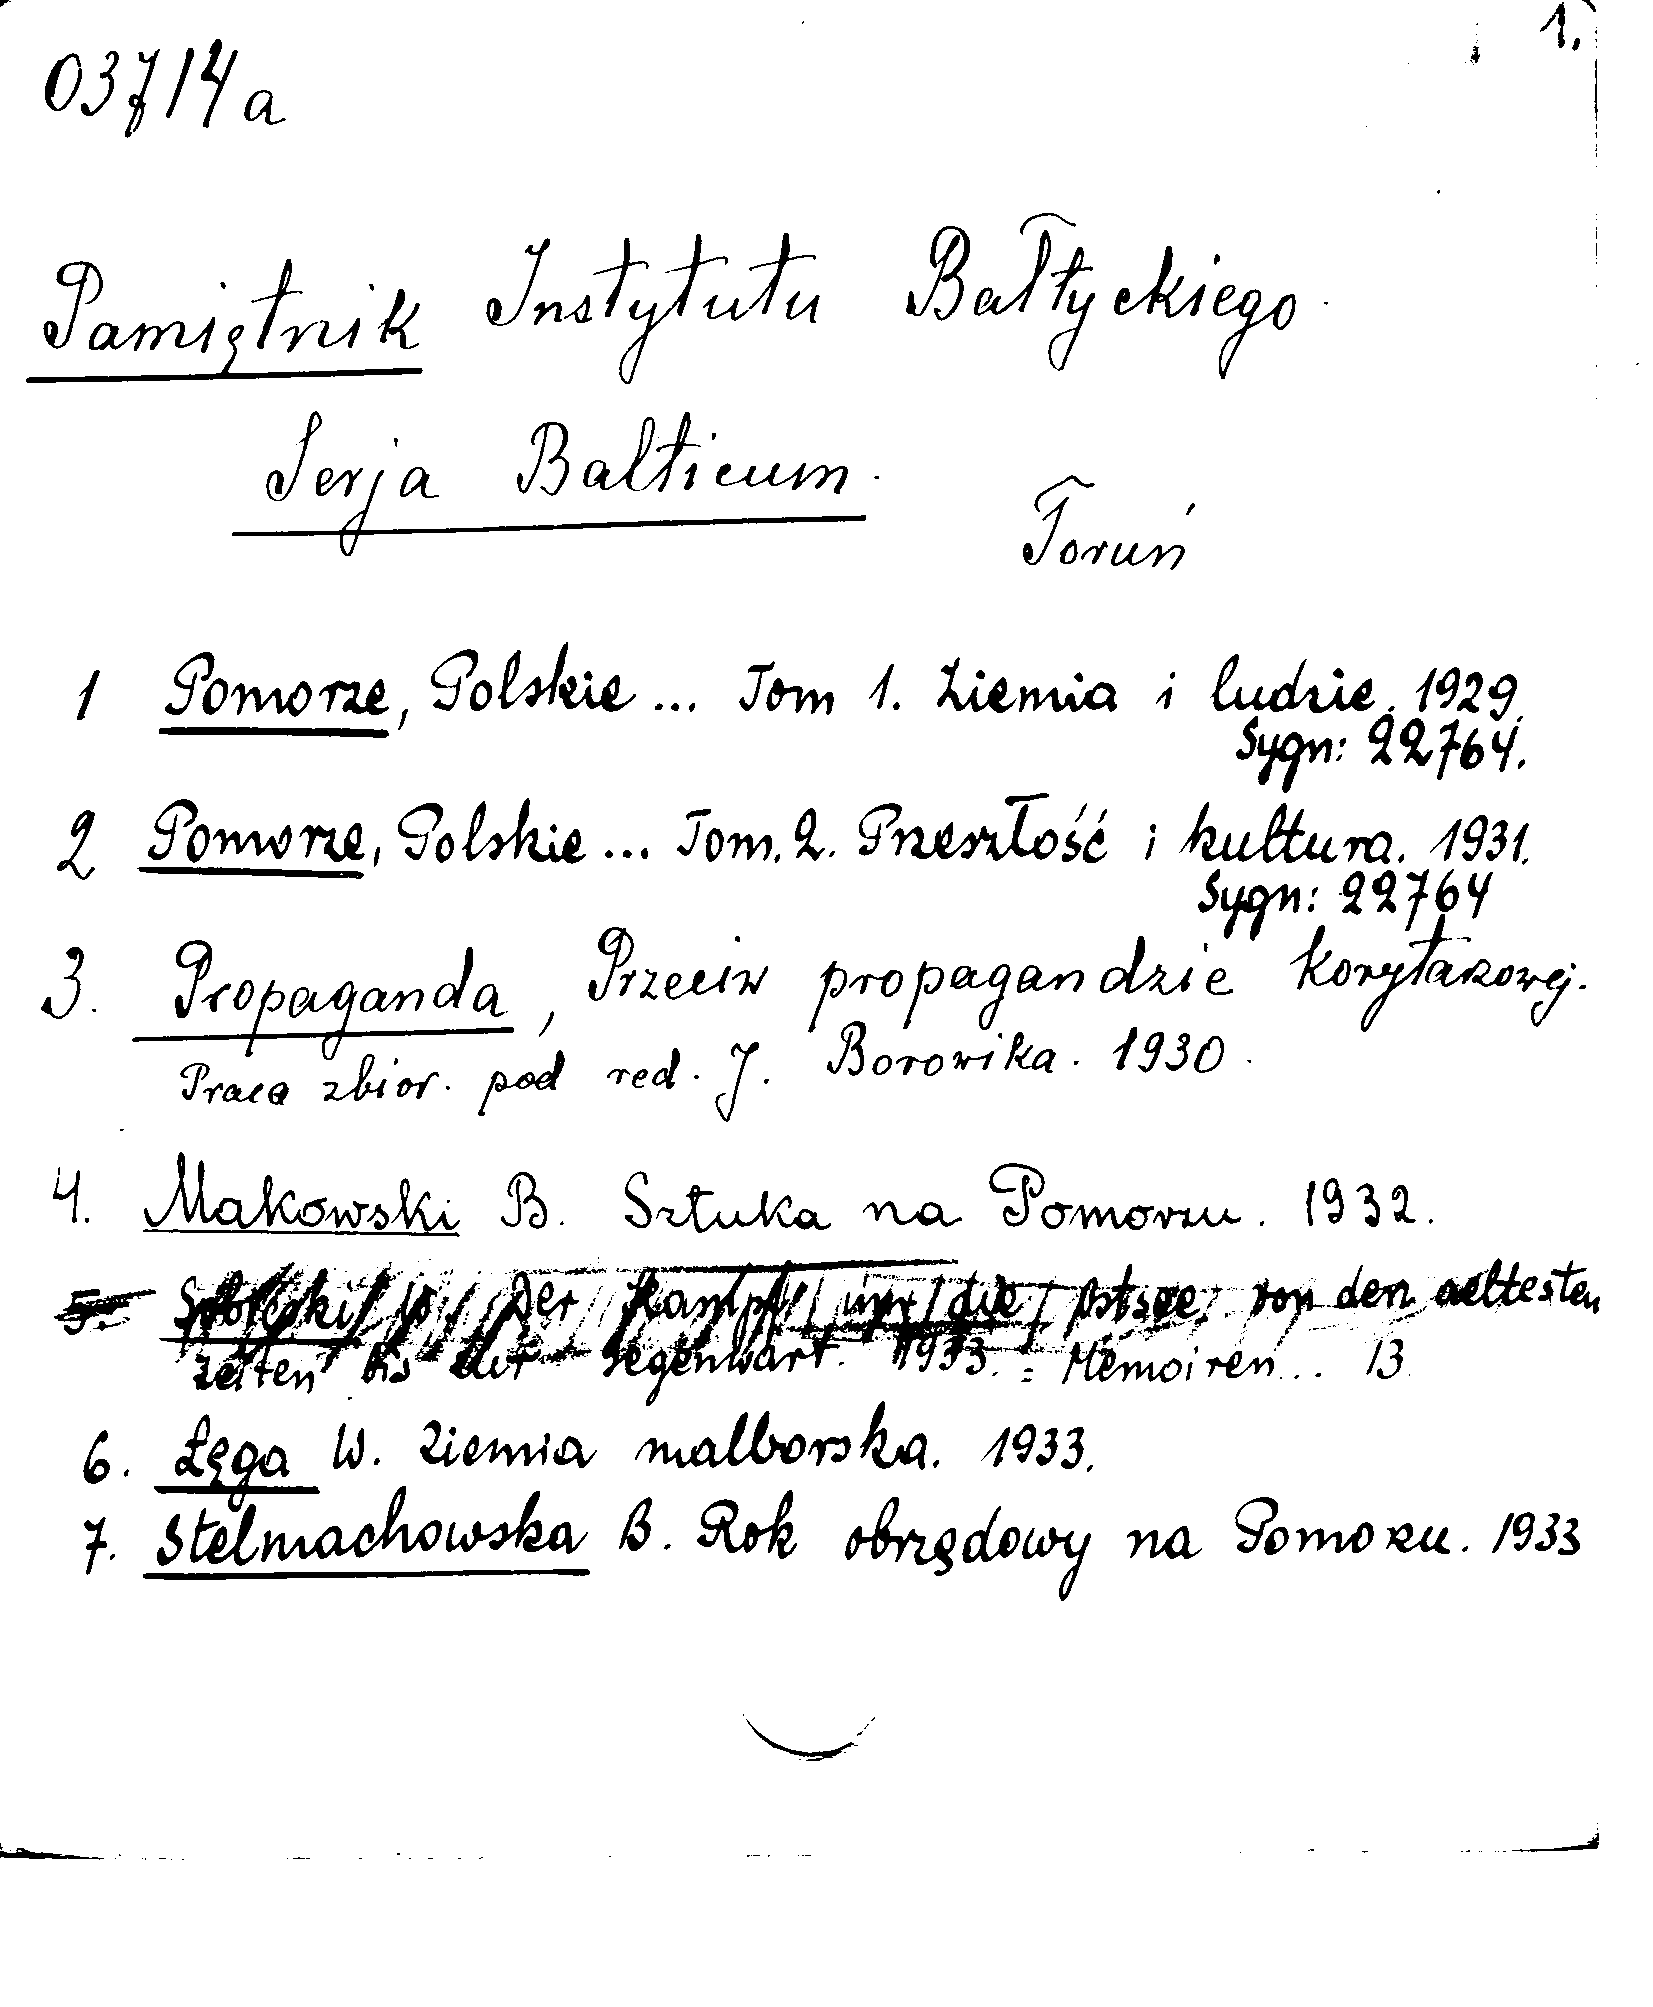 1.
03714a
Pamiętnik Instytutu Bałtyckiego.
Serja Balticum.
Toruń
1 Pomorze, Polskie... Tom 1. Ziemia i ludzie. 1929.
Sygn: 22764.
2 Pomorze, Polskie... Tom. 2. Przeszłość i kultura. 1931.
Sygn: 22764
3. Propaganda, Przeciw propagandzie korytarzowej.
Praca zbior. pod red. J. Borowika. 1930.
4. Makowski B. Sztuka na Pomorzu. 1932.
5. Der Kampf um die Ostsee von den aeltesten
Zeiten bis zur Gegenwart. 1933. = Memoiren... 13.
6. Łęga W. Ziemia malborska. 1933.
7. Stelmachowska B. Rok obrzędowy na Pomorzu. 1933